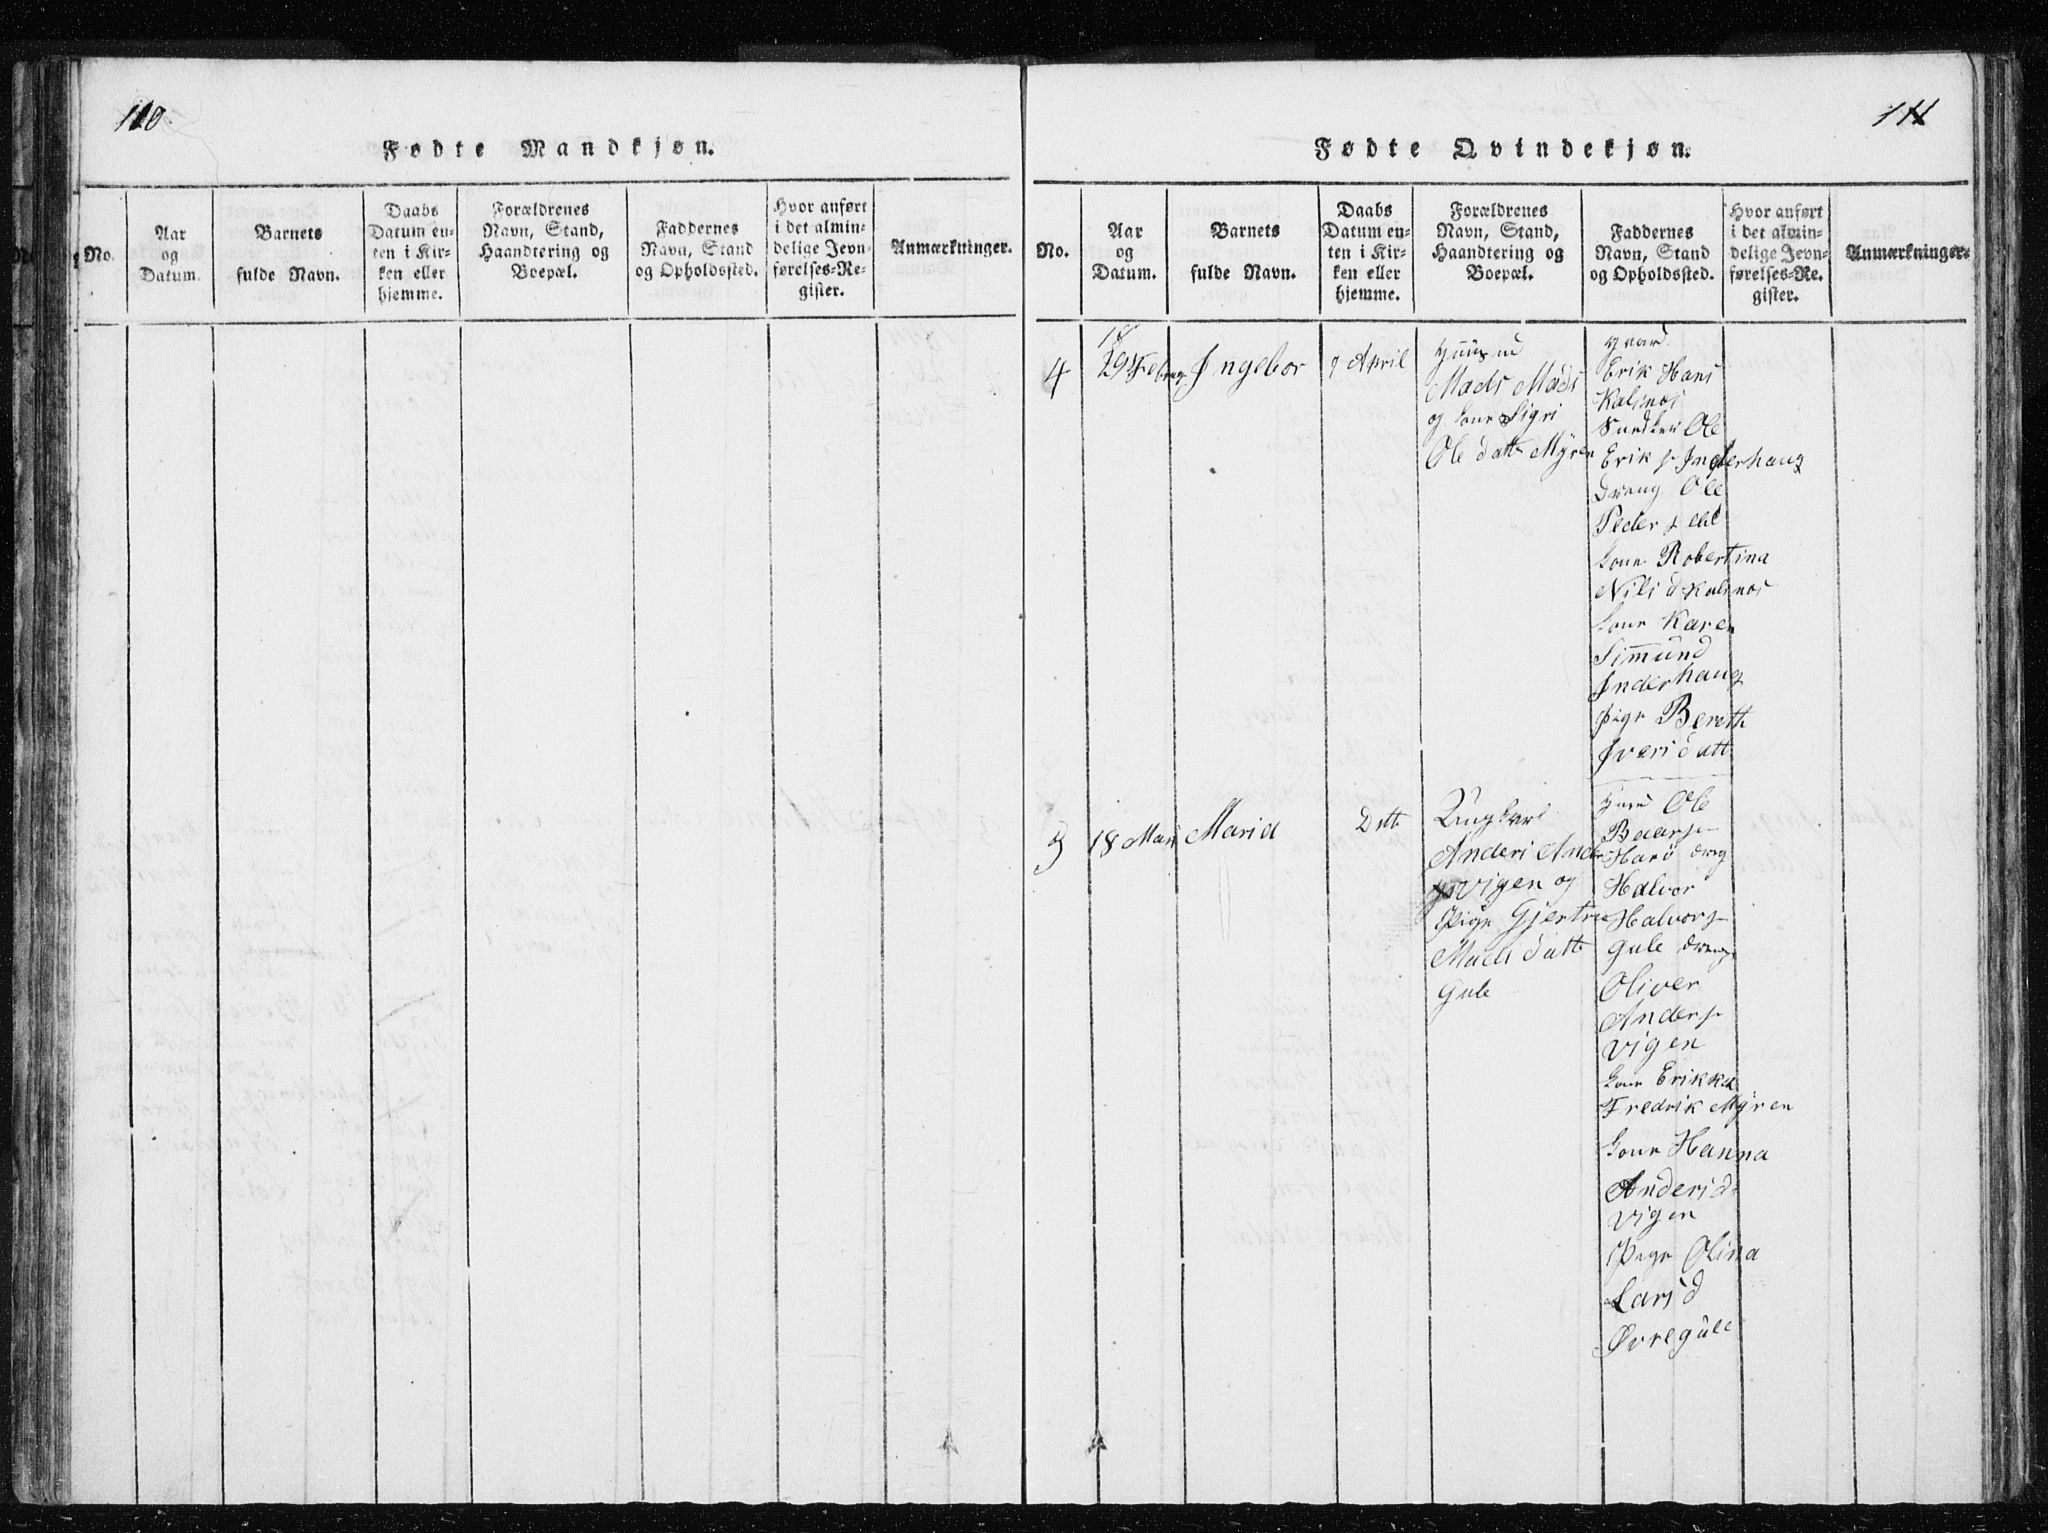 110
Fødte Mandkjøn.
No.
Aar
og
Datum.
Barnets
fulde Navn.
Daabs
Datum en-
ten i Kir-
ken eller
hjemme.
Forældrenes
Navn, Stand,
Haandtering og
Boepæl.
Faddernes
Navn, Stand
og Opholdssted.
Hvor anført
i det almin-
delige Jevn-
førelses-Re-
gister.
Anmærkninger.
111
Fødte Qvindekjøn.
No.
Aar
og
Datum.
Barnets
fulde Navn.
Daabs
Datum en-
ten i Kir-
ken eller
hjemme.
Forældrenes
Navn, Stand,
Haandtering og
Boepæl.
Faddernes
Navn, Stand
og Opholdssted.
Hvor anført
i det almin-
delige Jevn-
førelses-Re-
gister.
Anmærkninger.
4
29 Februg
Ingebor
9 April
Mads Mads
og Kone Sigri
Ole datt Myren
Erik Hans
Kalsnes
Snedker Ole
Erik s Inderhaug
Dreng Ole
Peder s
Kone Robertina
Nils d Kalsnes
Kone Karen
Simmund
Inderhaug
Pige Bereth
Ivers datt
18 Mars
Maria
Dette
Ungkarl
Anders Anders
Vigen og
Pige Gjertru
Mads datt
Gule
Ole
Baars-
Harö dreng
Halvor
Halvors-
Gule dreng
Oliver
Anders-
Vigen
Kone Erikka
Fredrik Myren
Kone Hanna
Anders d-
Vigen
Pige Olina
Lars d
Øvregule